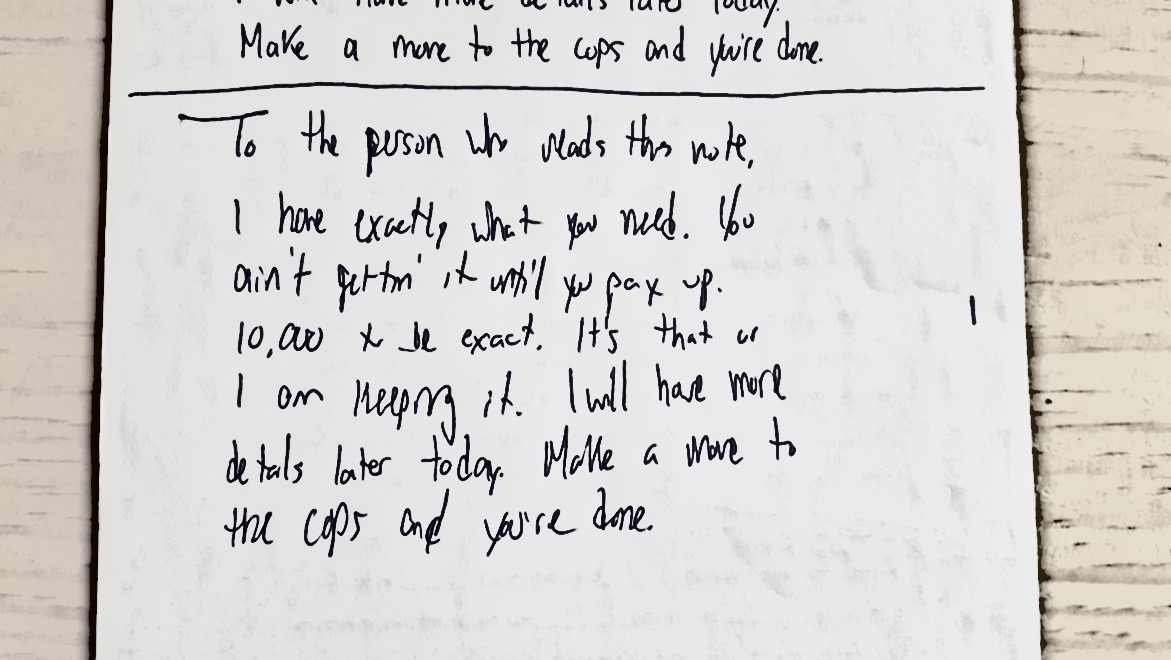 I will have more details later today.
Make a move to the cops and you're done.
To the person who reads this note,
I have exactly what you need. You
ain't gettin' it until you pay up.
10,000 to be exact. It's that or
I am keeping it. I will have more
details later today. Make a move to
the cops and you're done.